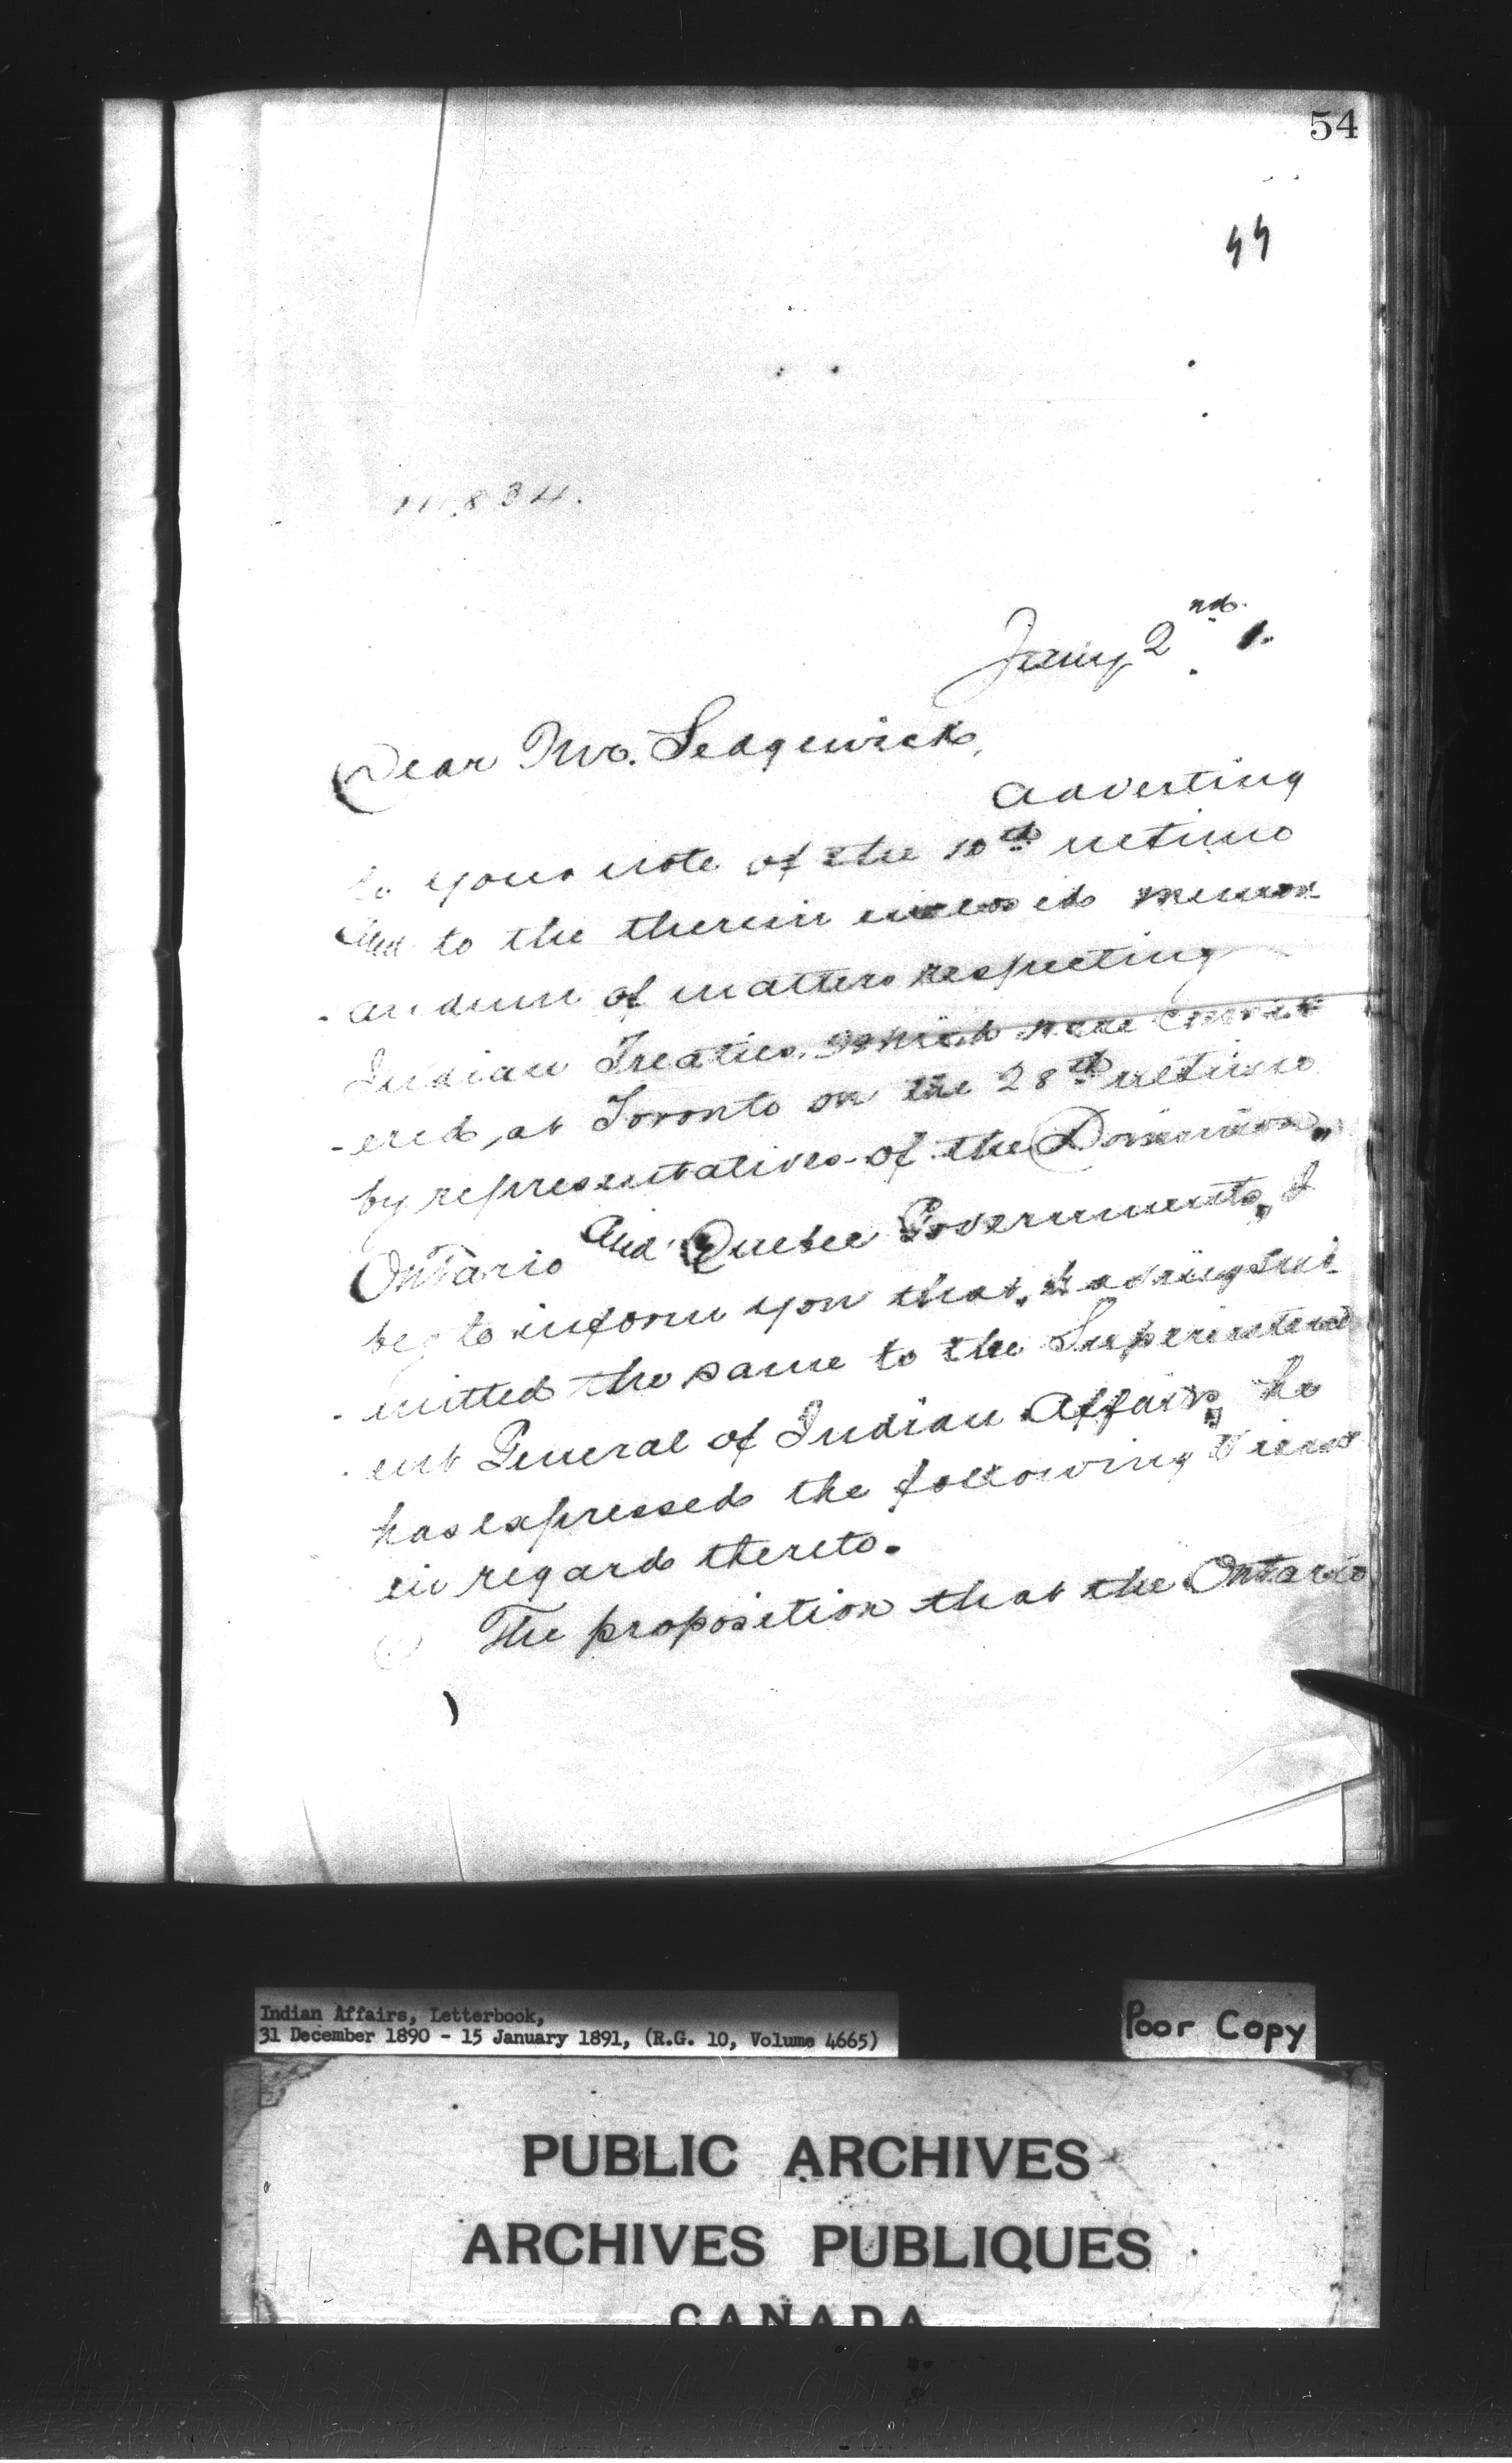 54
44
111.834.
Jany 2nd 1.
Dear Mr. Sedgewick,
Adverting
to your note of the 10th ultimo
and to the therein enclosed memor-
-andum of matters respecting
Indian Treaties, which were consid
-ered, at Toronto on the 28th ultimo
by representatives of the Dominion,
Ontario and Quebec Governments, I
beg to inform you that, having sub-
-mitted the same to the Superintend
-ent General of Indian Affairs, he
has expressed the following views
in regard thereto.
The proposition that the Ontario
Indian Affairs, Letterbook,
31 December 1890 - 15 January 1891, (R.G. 10, Volume 4665)
Poor Copy
PUBLIC ARCHIVES
ARCHIVES PUBLIQUES
CANADA